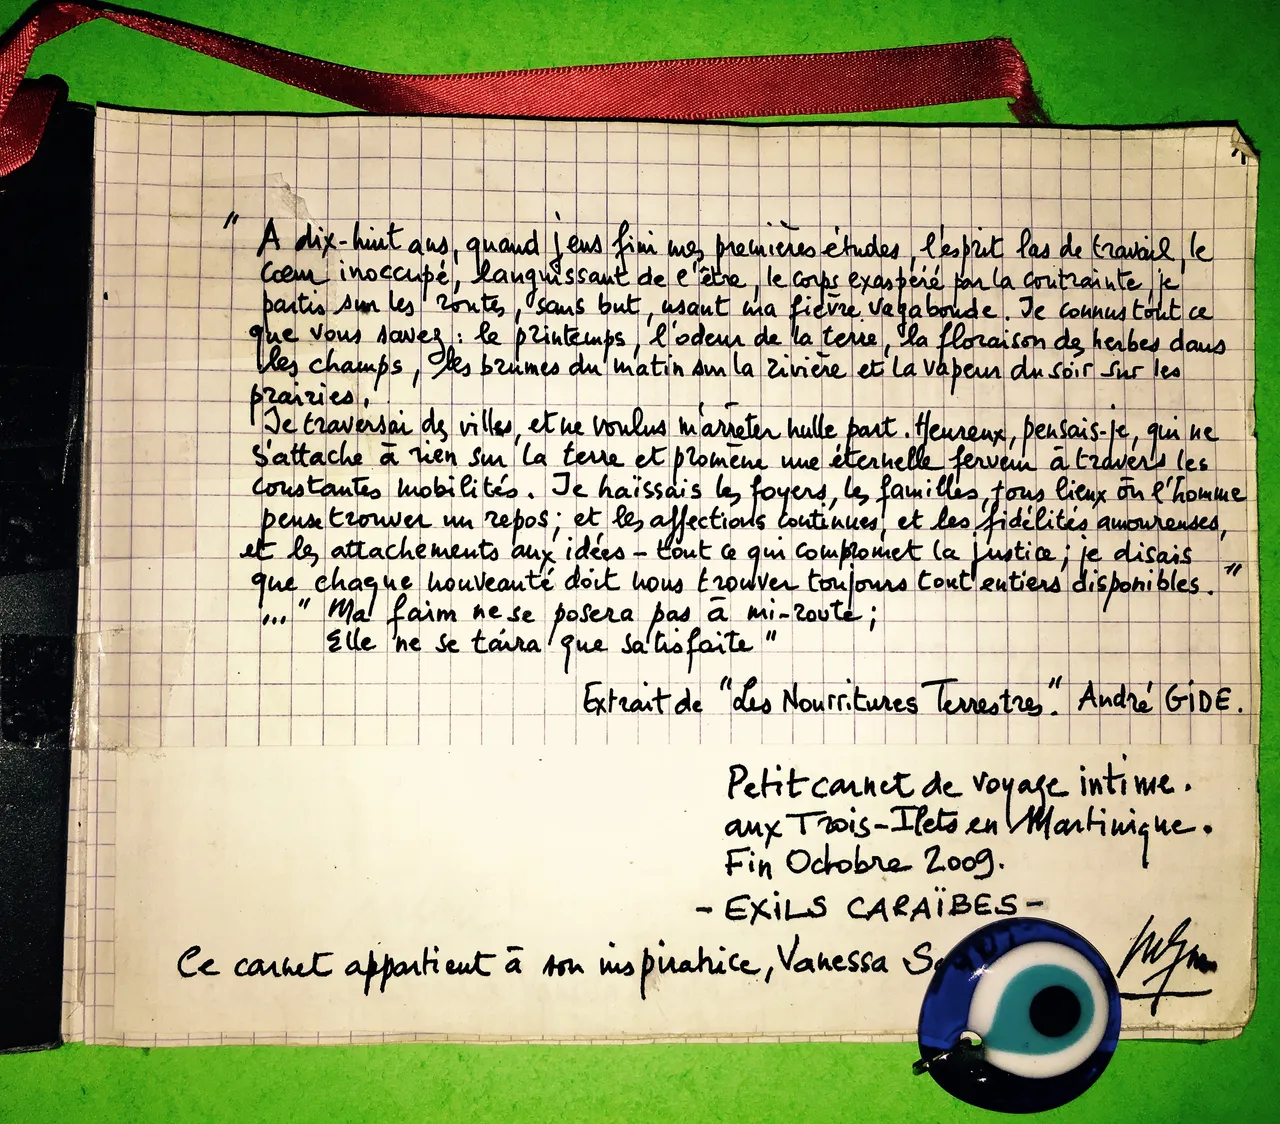 " A dix-huit ans, quand j'eus fini mes premières études, l'esprit las de travail, le
cœur inoccupé, languissant de l'être, le corps exaspéré par la contrainte, je
partis sur les routes, sans but, usant ma fièvre vagabonde. Je connus tout ce
que vous savez : le printemps, l'odeur de la terre, la floraison des herbes dans
les champs, les brumes du matin sur la rivière et la vapeur du soir sur les
prairies.
Je traversai des villes, et ne voulus m'arrêter nulle part. Heureux, pensais-je, qui ne
s'attache à rien sur la terre et promène une éternelle ferveur à travers les
constantes mobilités. Je haïssais les foyers, les familles, tous lieux où l'homme
pense trouver un repos; et les affections continues, et les fidélités amoureuses,
et les attachements aux idées - tout ce qui compromet la justice; je disais
que chaque nouveauté doit nous trouver toujours tout entiers disponibles. "
... " Ma faim ne se posera pas à mi-route;
Elle ne se taira que satisfaite "
Extrait de "Les Nourritures Terrestres". André GIDE.
Petit carnet de voyage intime.
aux Trois-Ilets en Martinique.
Fin Octobre 2009.
- EXILS CARAÏBES -
Ce carnet appartient à son inspiratrice, Vanessa